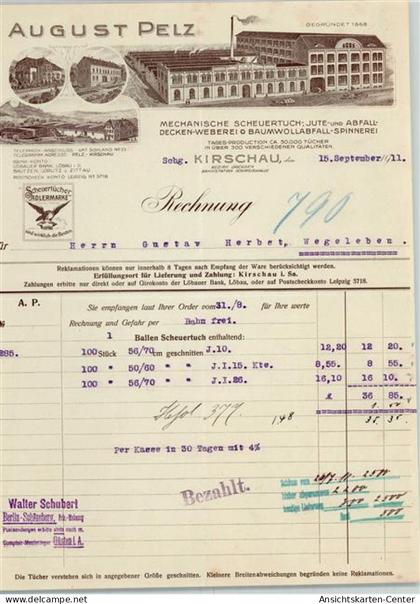 AUGUST PELZ
GEGRÜNDET 1868
MECHANISCHE SCHEUERTUCH-, JUTE- UND ABFALL-
DECKEN-WEBEREI & BAUMWOLLABFALL-SPINNEREI
TAGES-PRODUKTION CA. 30.000 TÜCHER
IN ÜBER 300 VERSCHIEDENEN QUALITÄTEN
TELEGRAMM-ADRESSE: PELZ-KIRSCHAU
BANK-KONTO
LÖBAUER BANK, LÖBAU I. S.
BAUTZEN, GÖRLITZ & ZITTAU
POSTSCHECK KONTO LEIPZIG Nº 5718
Schg. KIRSCHAU, den 15. September 1911.
Scheuertücher
ADLERMARKE
sind wirklich die Besten
Rechnung 790
für Herrn Gustav Herbst, Wegeleben.
Reklamationen können nur innerhalb 8 Tagen nach Empfang der Ware berücksichtigt werden.
Erfüllungsort für Lieferung und Zahlung: Kirschau i. Sa.
Zahlungen erbitte nur direkt oder auf Girokonto der Löbauer Bank, Löbau, oder auf Postscheckkonto Leipzig 5718.
A. P. Sie empfangen laut Ihrer Order vom 31./8. für Ihre werte
Rechnung und Gefahr per Bahn frei.
1 Ballen Scheuertuch enthaltend:
285. 100 Stück 56/70 cm geschnitten J.10. 12,20 12 20.
100 " 50/60 " " J.I.15. Kte. 8,55 8 55.
100 " 56/70 " " J.I.26. 16,10 16 10.
36 85.
35.35
Per Kasse in 30 Tagen mit 4%
Bezahlt.
Walter Schubert
Güsten i. A.
Die Tücher verstehen sich in angegebener Größe geschnitten. Kleinere Breitenabweichungen begründen keine Reklamationen.
www.hippostcard.com
Ansichtskarten-Center